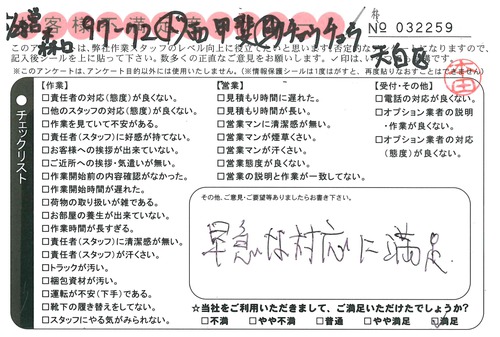 お客様不満足度
97-72
甲斐
チョウチョウ
林
No 032259
営
森口
天白区
このアンケートは、弊社作業スタッフのレベル向上に役立てたいと思います。否定的な
記入後シールを上に貼って下さい。数多くの正直なご意見をお願いします。✓印は、
※このアンケートは、アンケート目的以外には使用いたしません。（※情報保護シールは1度はがすと、再度貼りなおすことはできません）
チェックリスト
【作業】
□責任者の対応（態度）が良くない。
□他のスタッフの対応（態度）が良くない。
□作業を見ていて不安がある。
□責任者（スタッフ）に好感が持てない。
□お客様への挨拶が出来ていない。
□ご近所への挨拶・気遣いが無い。
□作業開始前の内容確認がなかった。
□作業開始時間が遅れた。
□荷物の取り扱いが雑である。
□お部屋の養生が出来ていない。
□作業時間が長すぎる。
□責任者（スタッフ）に清潔感が無い。
□責任者（スタッフ）が汗くさい。
□トラックが汚い。
□梱包資材が汚い。
□運転が不安（下手）である。
□靴下の履き替えをしてない。
□スタッフにやる気がみられない。
【営業】
□見積もり時間に遅れた。
□見積もり時間が長い。
□営業マンに清潔感が無い。
□営業マンが煙草くさい。
□営業マンが汗くさい。
□営業態度が良くない。
□営業の説明と作業が一致してない。
【受付・その他】
□電話の対応が良くない。
□オプション業者の説明
・作業が良くない。
□オプション業者の対応
（態度）が良くない。
その他、ご意見・ご要望等ありましたらお書き下さい。
早急な対応に満足
☆当社をご利用いただきまして、ご満足いただけたでしょうか？
□不満 □やや不満 □普通 □やや満足 ☑満足